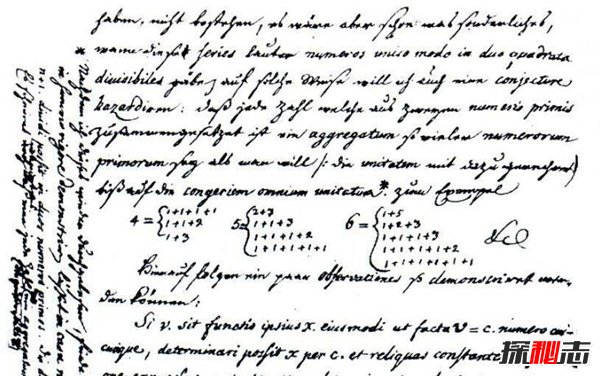 haben, nicht bestehen, es wäre aber schon was sonderliches,
wann diese series lauter numeros unico modo in duo quadrata
divisibiles gäbe, auf solche Weise will ich auch eine conjecture
hazardiren: daß jede Zahl welche aus zweyen numeris primis
zusammengesetzet ist ein aggregatum so vieler numerorum
primorum sey als man will /: die unitatem mit dazu gerechnet)
biß auf die congeriem omnium unitatum*. zum Exempel
4 = { 1+1+1+1 5 = { 2+3 6 = { 1+5
1+1+2 1+1+3 1+2+3
1+3 1+1+1+2 1+1+1+3
1+1+1+1+1 1+1+1+1+2
1+1+1+1+1+1 &c
Hierauf folgen ein paar observationes so demonstriret wer-
den können:
Si v. sit functio ipsius x. eiusmodi ut facta v = c. numero cui-
cunque, determinari possit x per c. et reliquas constantes
* Nachdem ich dieses wieder durchgelesen, finde
in summo rigore demonstriren lässet in casu n
n+1 dividi possit in duos numeros primos. Die
探秘志